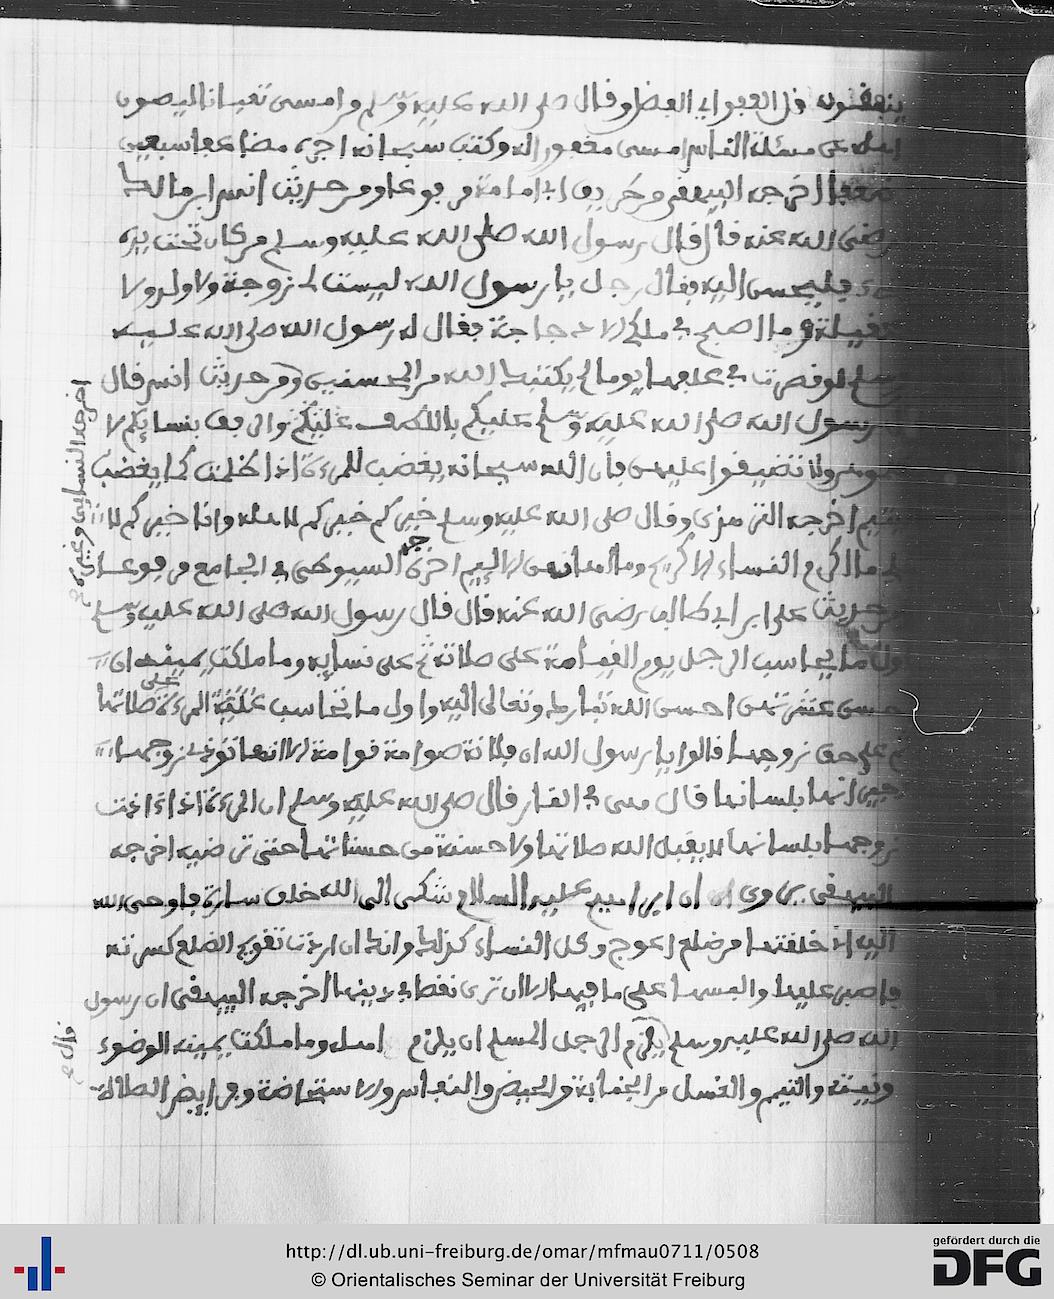 ينفقونه قل العفو اي الفضل وقال صلى الله عليه وسلم من امسى تعبانا ليصون
اهله عن مسئلة الناس امسى مغفورا له وكتب سبحانه اجره مضاعفا سبعين
ضعفا اخرجه البيهقي من طريق ابي امامة مرفوعا ومن حديث انس ابن مالك
رضي الله عنه قال قال رسول الله صلى الله عليه وسلم من كان تحت يده
فليحسن اليه فقال رجل يا رسول الله ليست لي زوجة ولا ولد ولا
ما اصبح في ملكي الا دجاجة فقال له رسول الله صلى الله عليه
وسلم لو قصرت في علفها يوما لم يكتبك الله من المحسنين ومن حديث انس قال
رسول الله صلى الله عليه وسلم عليكم باللطف عليكم والرفق بنسايكم لا
ولا تضيقوا عليهن فان الله سبحانه يغضب للمرءة اذا ظلمت كما يغضب
لليتيم اخرجه الترمذي وقال صلى الله عليه وسلم خيركم خيركم لاهله وانا خيركم لا
هلي ما اكرم النساء الا كريم وما اهانهن الا لئيم اخرجه السيوطي في الجامع مرفوعا
من حديث علي ابن ابي طالب رضي الله عنه قال قال رسول الله صلى الله عليه وسلم
اول ما يحاسب الرجل يوم القيامة على صلاته ثم على نسايه وما ملكت يمينه ان
احسن عشرتهن احسن الله تبارك وتعالى اليه واول ما تحاسب عليه المرءة على صلاتها
ثم على حق زوجها قالوا يا رسول الله ان فلانة صوامة قوامة الا انها توذي زوجها
بلسانها قال هي في النار قال صلى الله عليه وسلم ان المرءة اذا ءاذت
زوجها بلسانها لا يقبل الله صلاتها ولا حسنة من حسناتها حتى ترضيه اخرجه
البيهقي روي ان ابراهيم عليه السلام شكى الى الله خلق سارة فاوحى الله
اليه اني خلقتها من ضلع اعوج وكل النساء كذلك وانك ان اردت تقويم الضلع كسرته
فاصبر عليها والبسها على ما فيها الا ان ترى نقصا في دينها اخرجه البيهقي ان رسول
الله صلى الله عليه وسلم يلزم الرجل المسلم ان يلزم اهله وما ملكت يمينه الوضوء
ونيته والتيمم والغسل من الجنابة والحيض والنفاس والاستحاضة وفرايض الصلاة
اخرجه النسايي وغيره
قال
http://dl.ub.uni-freiburg.de/omar/mfmau0711/0508
© Orientalisches Seminar der Universität Freiburg
gefördert durch die
DFG